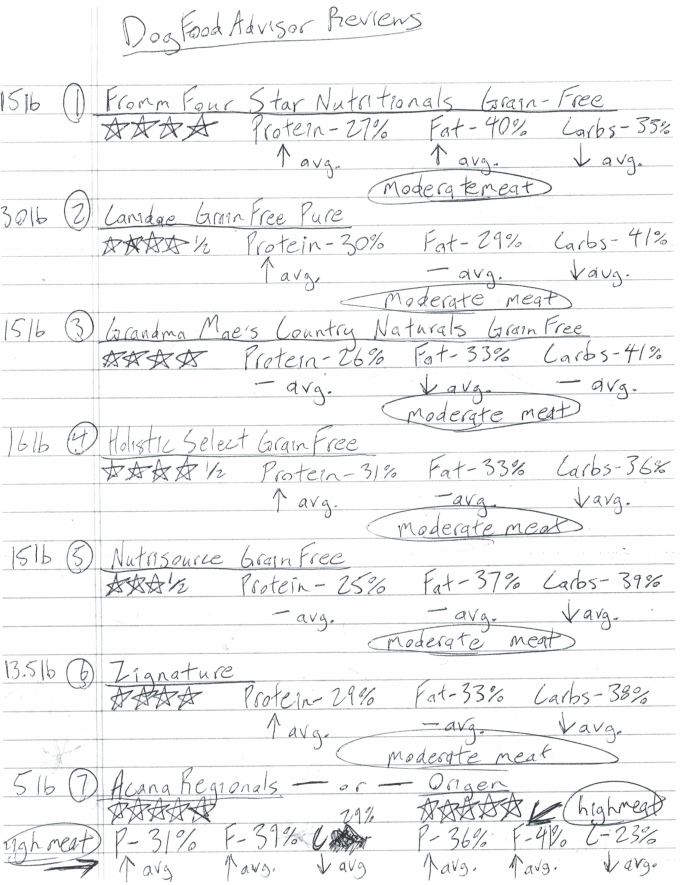 DogFoodAdvisor Reviews
15lb ① Fromm Four Star Nutritionals Grain-Free
☆☆☆☆ Protein-27% Fat-40% Carbs-33%
↑ avg. ↑ avg. ↓ avg.
Moderate meat
30lb ② Canidae Grain Free Pure
☆☆☆☆½ Protein-30% Fat-29% Carbs-41%
↑ avg. - avg. ↓ avg.
Moderate meat
15lb ③ Grandma Mae's Country Naturals Grain Free
☆☆☆☆ Protein-26% Fat-33% Carbs-41%
- avg. ↓ avg. - avg.
Moderate meat
16lb ④ Holistic Select Grain Free
☆☆☆☆½ Protein-31% Fat-33% Carbs-36%
↑ avg. - avg. ↓ avg.
Moderate meat
15lb ⑤ Nutrisource Grain Free
☆☆☆½ Protein-25% Fat-37% Carbs-39%
- avg. - avg. ↓ avg.
Moderate meat
13.5lb ⑥ Zignature
☆☆☆☆ Protein-29% Fat-33% Carbs-38%
↑ avg. - avg. ↓ avg.
Moderate meat
5lb ⑦ Acana Regionals — or — Origen
☆☆☆☆☆ 29% ☆☆☆☆☆ high meat
high meat P-31% F-39% C P-36% F-41% C-23%
↑ avg ↑ avg. ↓ avg ↑ avg. ↑ avg. ↓ avg.